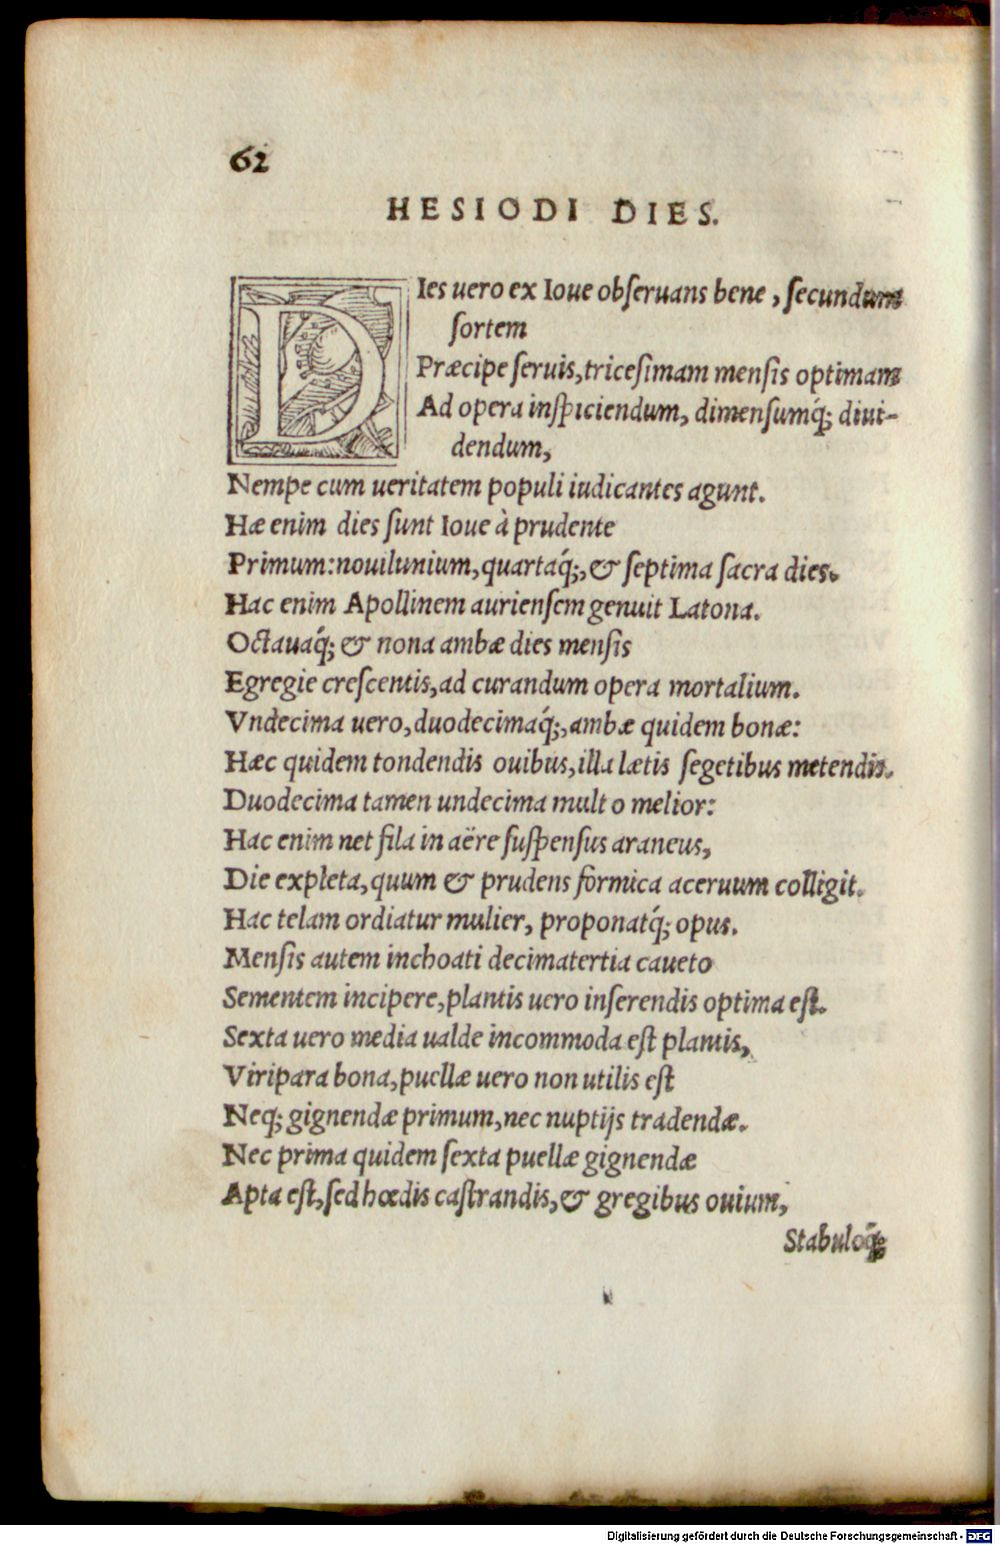 62
HESIODI DIES.
DIes uero ex Ioue obſeruans bene, ſecundum
ſortem
Præcipe ſeruis, triceſimam menſis optimam
Ad opera inſpiciendum, dimenſumq́; diui-
dendum,
Nempe cum ueritatem populi iudicantes agunt.
Hæ enim dies ſunt Ioue à prudente
Primum: nouilunium, quartaq́;, & ſeptima ſacra dies.
Hac enim Apollinem aurienſem genuit Latona.
Octauaq́; & nona ambæ dies menſis
Egregie creſcentis, ad curandum opera mortalium.
Vndecima uero, duodecimaq́;, ambæ quidem bonæ:
Hæc quidem tondendis ouibus, illa lætis ſegetibus metendis.
Duodecima tamen undecima mult o melior:
Hac enim net fila in aëre ſuſpenſus araneus,
Die expleta, quum & prudens formica aceruum colligit.
Hac telam ordiatur mulier, proponatq́; opus.
Menſis autem inchoati decimatertia caueto
Sementem incipere, plantis uero inſerendis optima eſt.
Sexta uero media ualde incommoda eſt plantis,
Viripara bona, puellæ uero non utilis eſt
Neq; gignendæ primum, nec nuptijs tradendæ.
Nec prima quidem ſexta puellæ gignendæ
Apta eſt, ſed hœdis caſtrandis, & gregibus ouium,
Stabuloq́;
Digitalisierung gefördert durch die Deutsche Forschungsgemeinschaft - DFG